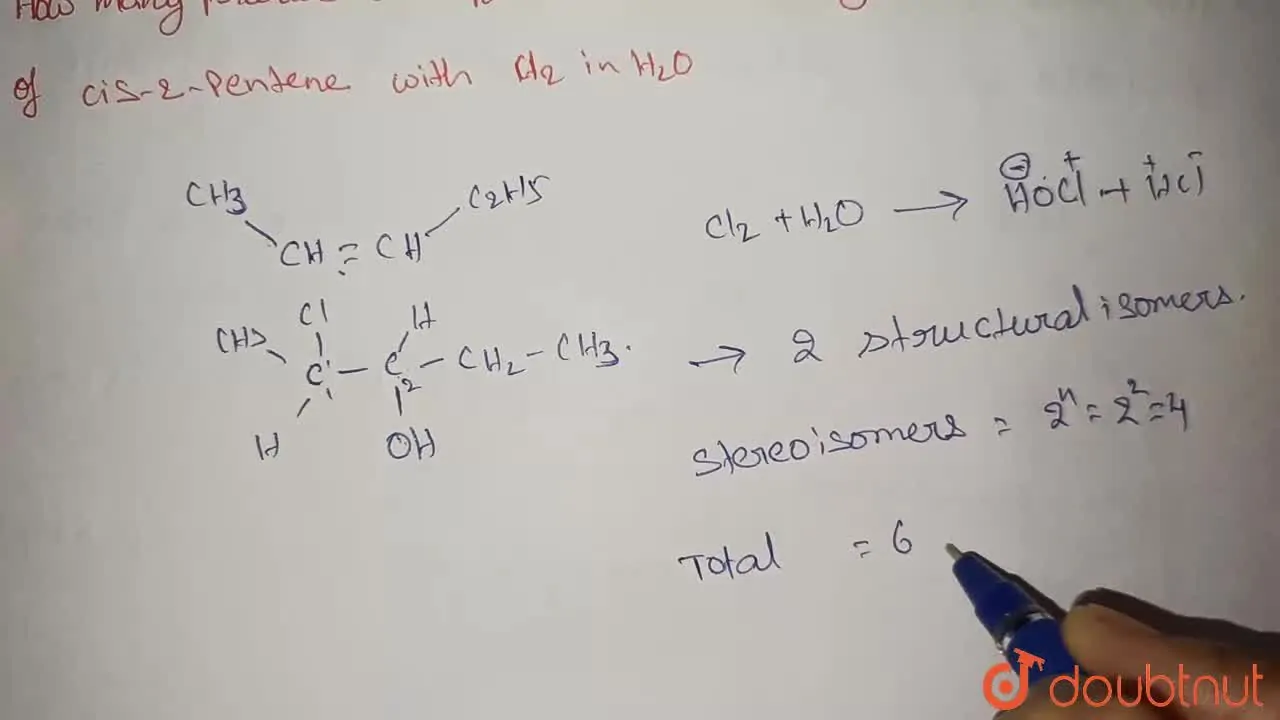 How many
of cis-2-Pentene with Cl2 in H2O
CH3 C2H5
CH = CH
Cl2 + H2O → HOCl + HCl
⊖ + + -
Cl H
CH3
C1 - C - CH2 - CH3.
2
H OH
→ 2 structural isomers.
stereoisomers = 2^n = 2^2 = 4
Total = 6
doubtnut